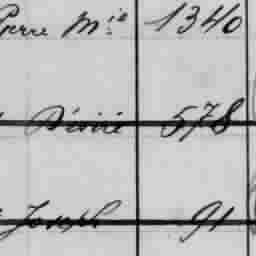 Pierre Mie 1340
Désiré 578
Joseph 91